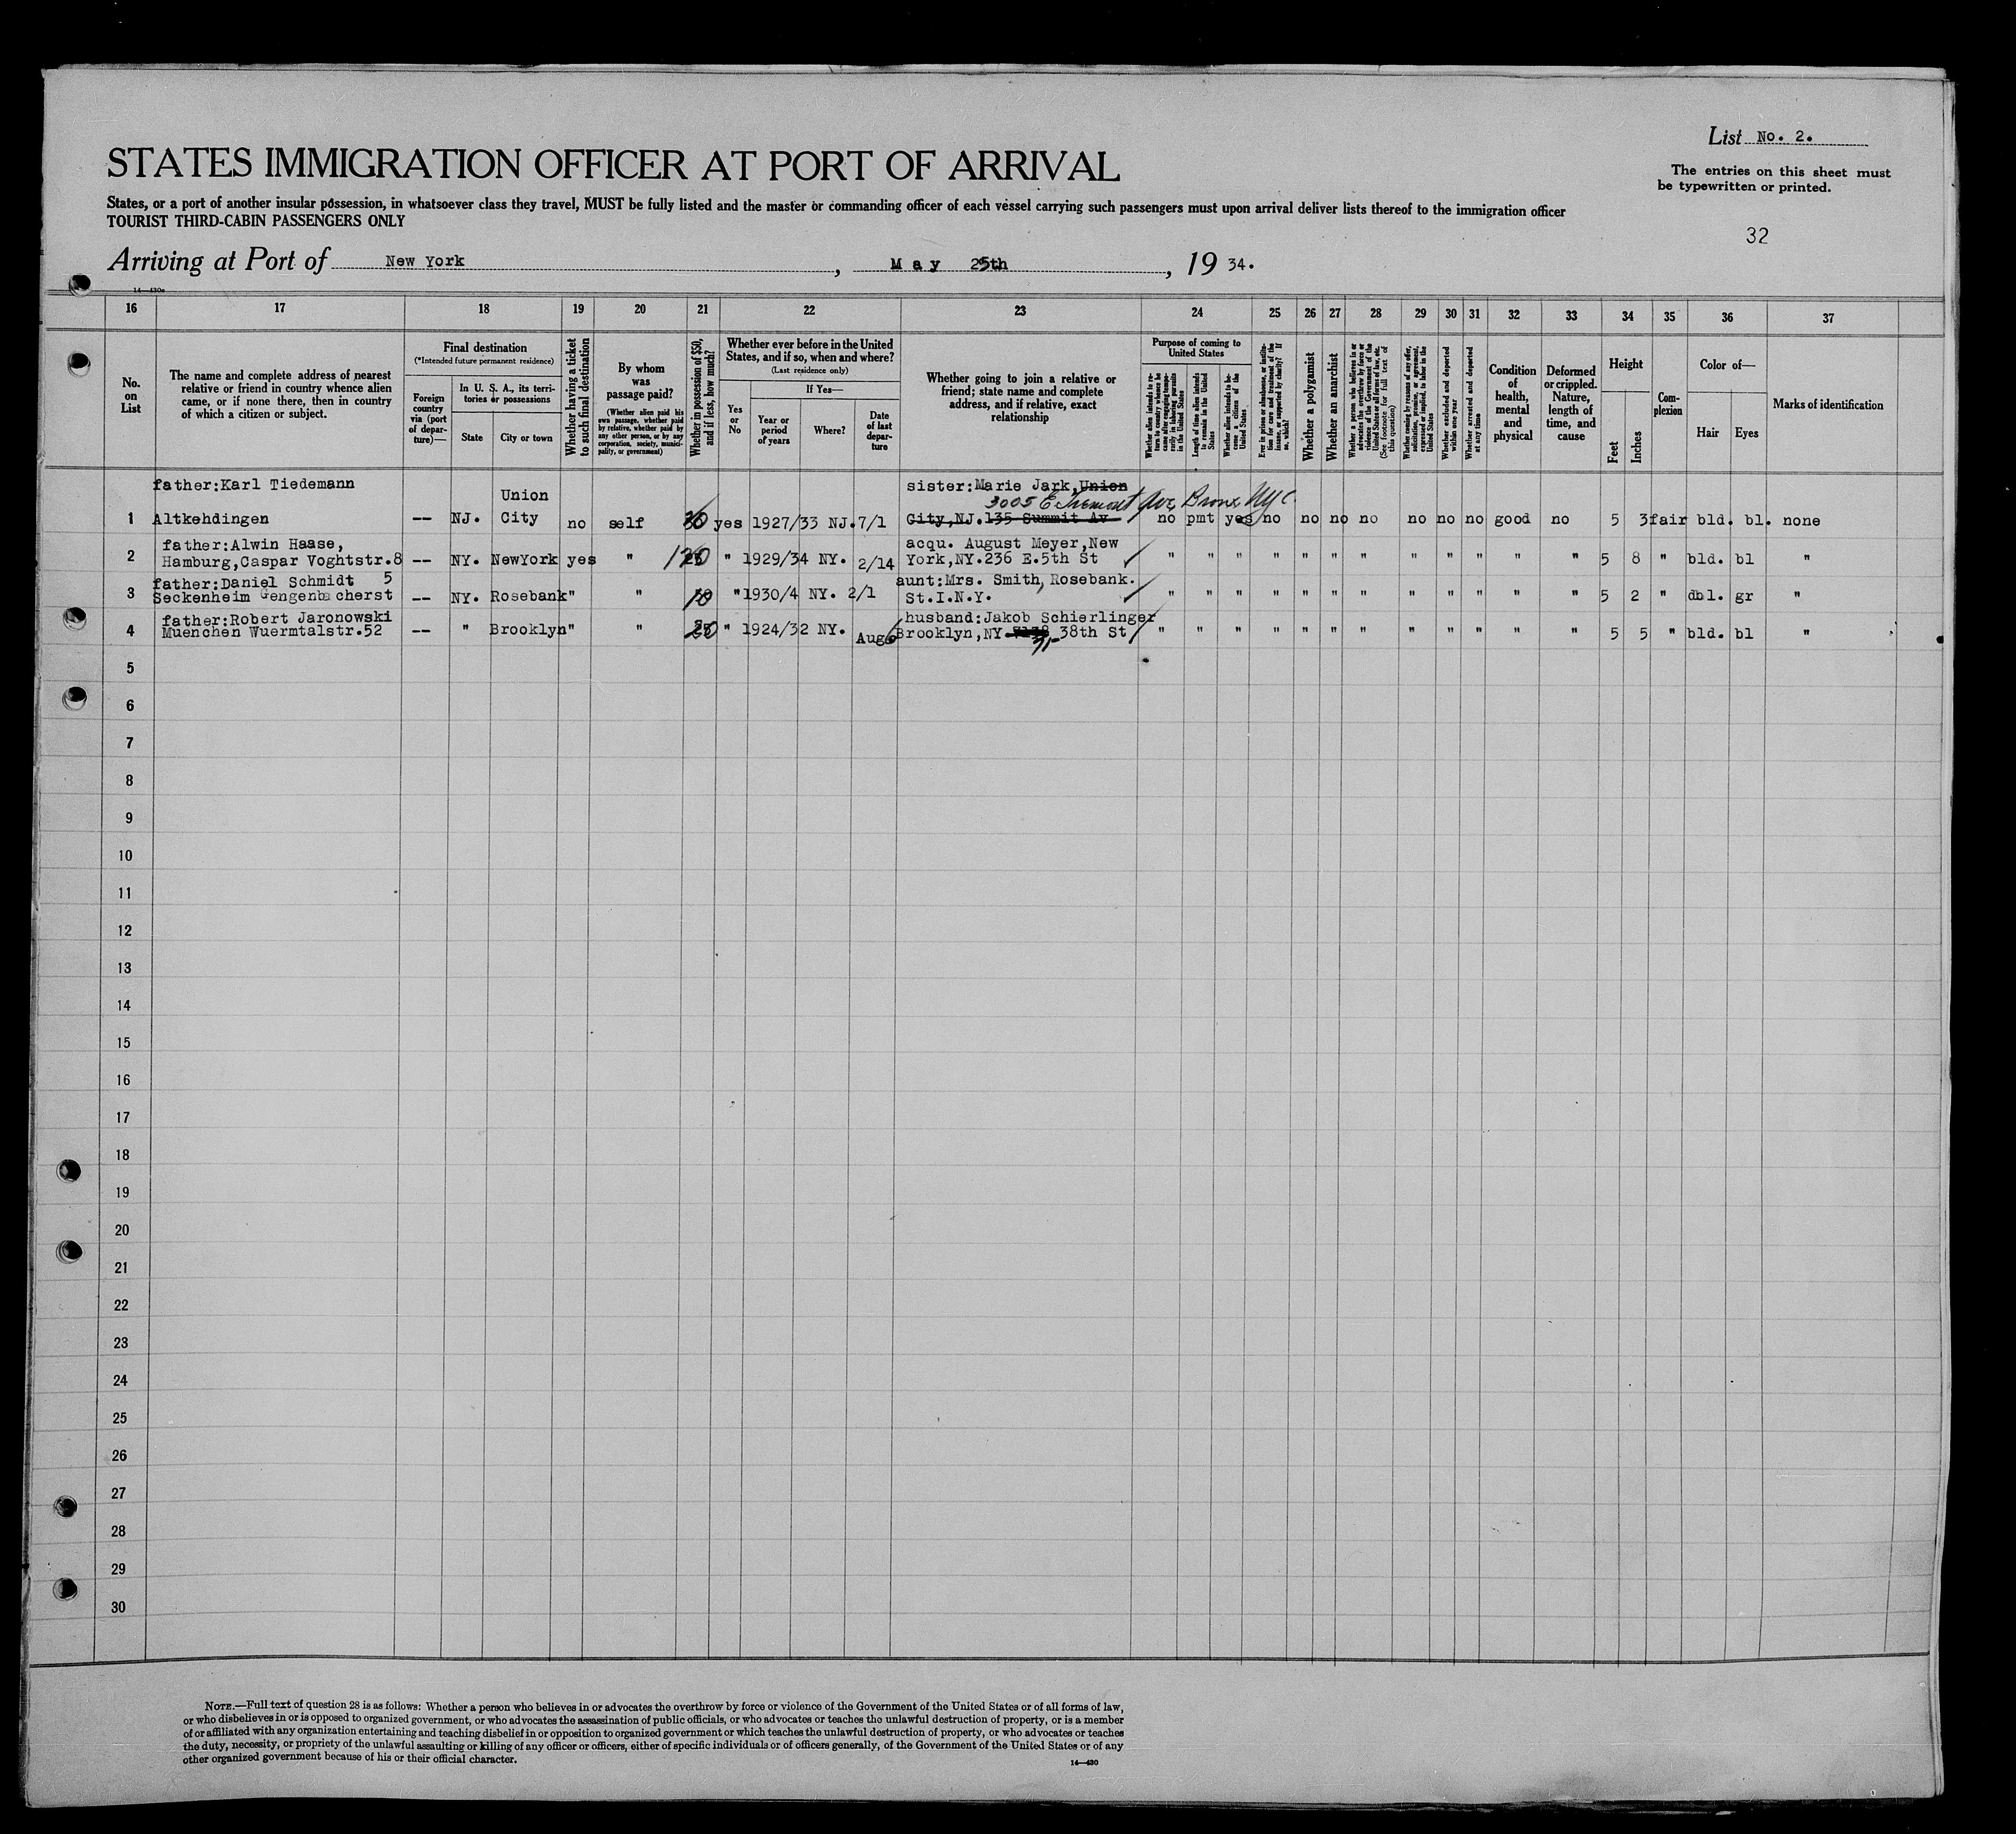 List No. 2.
STATES IMMIGRATION OFFICER AT PORT OF ARRIVAL
The entries on this sheet must
be typewritten or printed.
States, or a port of another insular possession, in whatsoever class they travel, MUST be fully listed and the master or commanding officer of each vessel carrying such passengers must upon arrival deliver lists thereof to the immigration officer
TOURIST THIRD-CABIN PASSENGERS ONLY
32
Arriving at Port of New York, May 25th, 19 34.
14—430a
16 17 18 19 20 21 22 23 24 25 26 27 28 29 30 31 32 33 34 35 36 37
No.
on
List
The name and complete address of nearest
relative or friend in country whence alien
came, or if none there, then in country
of which a citizen or subject.
Final destination
(*Intended future permanent residence)
Foreign
country
via (port
of depar-
ture)—
In U. S. A., its terri-
tories or possessions
State
City or town
Whether having a ticket
to such final destination
By whom
was
passage paid?
(Whether alien paid his
own passage, whether paid
by relative, whether paid by
any other person, or by any
corporation, society, munici-
pality, or government)
Whether in possession of $50,
and if less, how much?
Whether ever before in the United
States, and if so, when and where?
(Last residence only)
Yes
or
No
If Yes—
Year or
period
of years
Where?
Date
of last
depar-
ture
Whether going to join a relative or
friend; state name and complete
address, and if relative, exact
relationship
Purpose of coming to
United States
Whether alien intends to re-
turn to country whence he
came after engaging tempo-
rarily in laboring pursuits
in the United States
Length of time alien intends
to remain in the United
States
Whether alien intends to be-
come a citizen of the
United States
Ever in prison or almshouse, or institu-
tion for care and treatment of the
insane, or supported by charity? If
so, which?
Whether a polygamist
Whether an anarchist
Whether a person who believes in or
advocates the overthrow by force or
violence of the Government of the
United States or of all forms of law, etc.
(See footnote for full text of
this question)
Whether coming by reasons of any offer,
solicitation, promise, or agreement,
expressed or implied, to labor in the
United States
Whether excluded and deported
within one year
Whether arrested and deported
at any time
Condition
of
health,
mental
and
physical
Deformed
or crippled.
Nature,
length of
time, and
cause
Height
Feet
Inches
Com-
plexion
Color of—
Hair
Eyes
Marks of identification
father:Karl Tiedemann Union sister:Marie Jark,Union
3005 E. Tremont Ave, Bronx NYC.
1 Altkehdingen -- NJ. City no self 30 yes 1927/33 NJ. 7/1 City,NJ.135 Summit Av no pmt yes no no no no no no no good no 5 3 fair bld. bl. none
father:Alwin Haase, acqu. August Meyer,New
2 Hamburg,Caspar Voghtstr.8 -- NY. NewYork yes " 120 " 1929/34 NY. 2/14 York,NY.236 E.5th St " " " " " " " " " " " " 5 8 " bld. bl "
father:Daniel Schmidt 5 aunt:Mrs. Smith, Rosebank.
3 Seckenheim Gengenbacherst -- NY. Rosebank " " 10 " 1930/4 NY. 2/1 St.I.N.Y. " " " " " " " " " " " " 5 2 " dbl. gr "
father:Robert Jaronowski husband:Jakob Schierlinger
4 Muenchen Wuermtalstr.52 -- " Brooklyn " " " 1924/32 NY. Aug6 Brooklyn,NY 38th St " " " " " " " " " " " " 5 5 " bld. bl "
5
6
7
8
9
10
11
12
13
14
15
16
17
18
19
20
21
22
23
24
25
26
27
28
29
30
NOTE.—Full text of question 28 is as follows: Whether a person who believes in or advocates the overthrow by force or violence of the Government of the United States or of all forms of law,
or who disbelieves in or is opposed to organized government, or who advocates the assassination of public officials, or who advocates or teaches the unlawful destruction of property, or is a member
of or affiliated with any organization entertaining and teaching disbelief in or opposition to organized government or which teaches the unlawful destruction of property, or who advocates or teaches
the duty, necessity, or propriety of the unlawful assaulting or killing of any officer or officers, either of specific individuals or of officers generally, of the Government of the United States or of any
other organized government because of his or their official character.
14—430